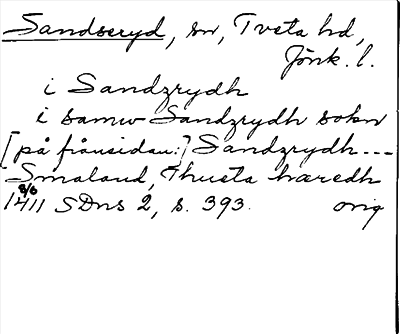 Sandseryd, sn, Tveta hd,
Jönk. l.
i Sandzrydh
i samw Sandzrydh sokn
[på frånsidan:] Sandzrydh---
Smaland, Thusta hæredh
8/6
1411 SDns 2, s. 393. orig